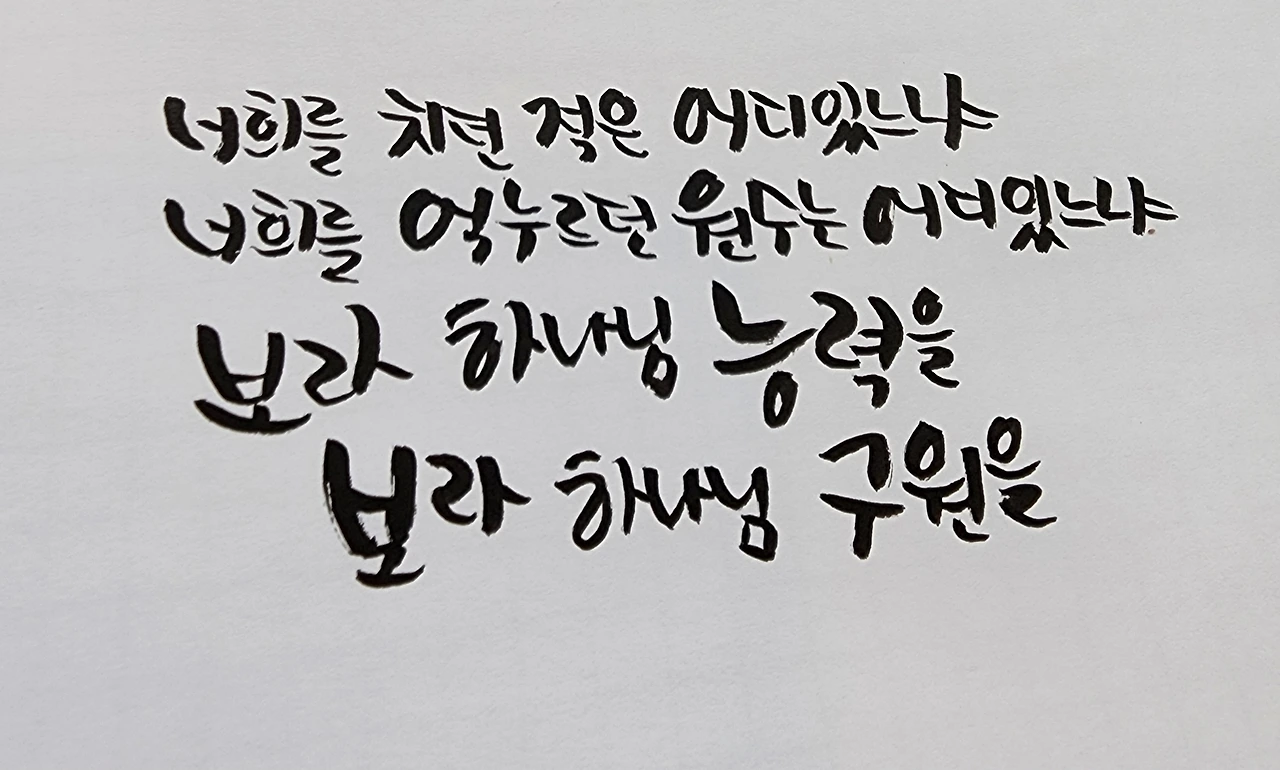 너희를 치던 적은 어디있느냐
너희를 억누르던 원수는 어디있느냐
보라 하나님 능력을
보라 하나님 구원을